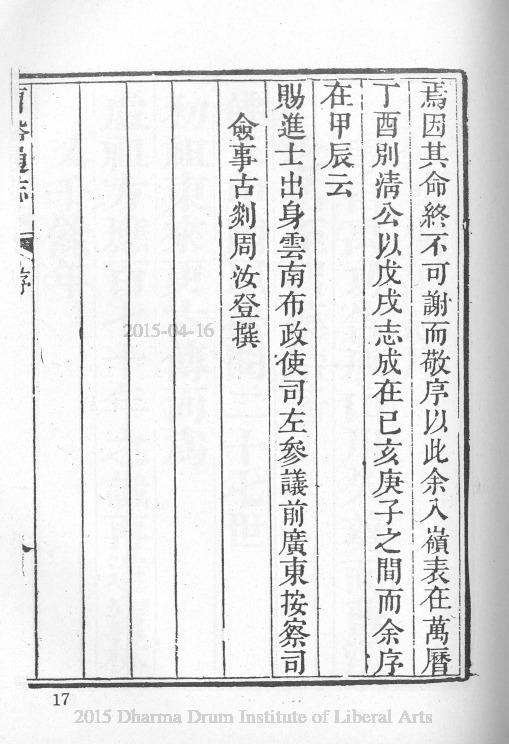 焉因其命終不可謝而敬序以此余入嶺表在萬曆
丁酉別清公以戊戌志成在已亥庚子之間而余序
在甲辰云
賜進士出身雲南布政使司左參議前廣東按察司
僉事古剡周汝登撰
序
2015-04-16
17
2015 Dharma Drum Institute of Liberal Arts